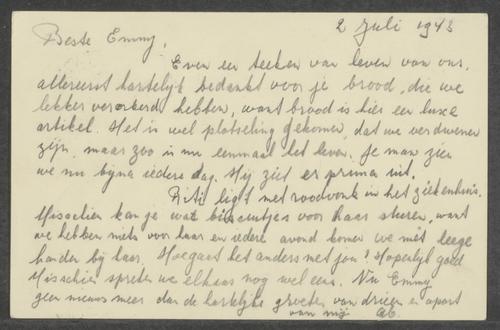 2 Juli 1943
Beste Emmy,
Even een teeken van leven van ons,
allereerst hartelijk bedankt voor je brood, die we
lekker verorberd hebben, want brood is hier een luxe
artikel. Het is wel plotseling gekomen, dat we verdwenen
zijn, maar zoo is nu eenmaal het leven. Je man zien
we nu bijna iedere dag. Hij ziet er prima uit.
ligt met roodvonk in het ziekenhuis.
Misschien kan je wat biscuitjes voor haar sturen, want
we hebben niets voor haar en iedere avond komen we met leege
handen bij haar. Hoe gaat het anders met jou? Hopelijk goed
Misschien spreken we elkaar nog wel eens. Nu Emmy
geen nieuws meer dan de hartelijke groeten van drieën en apart
van mij